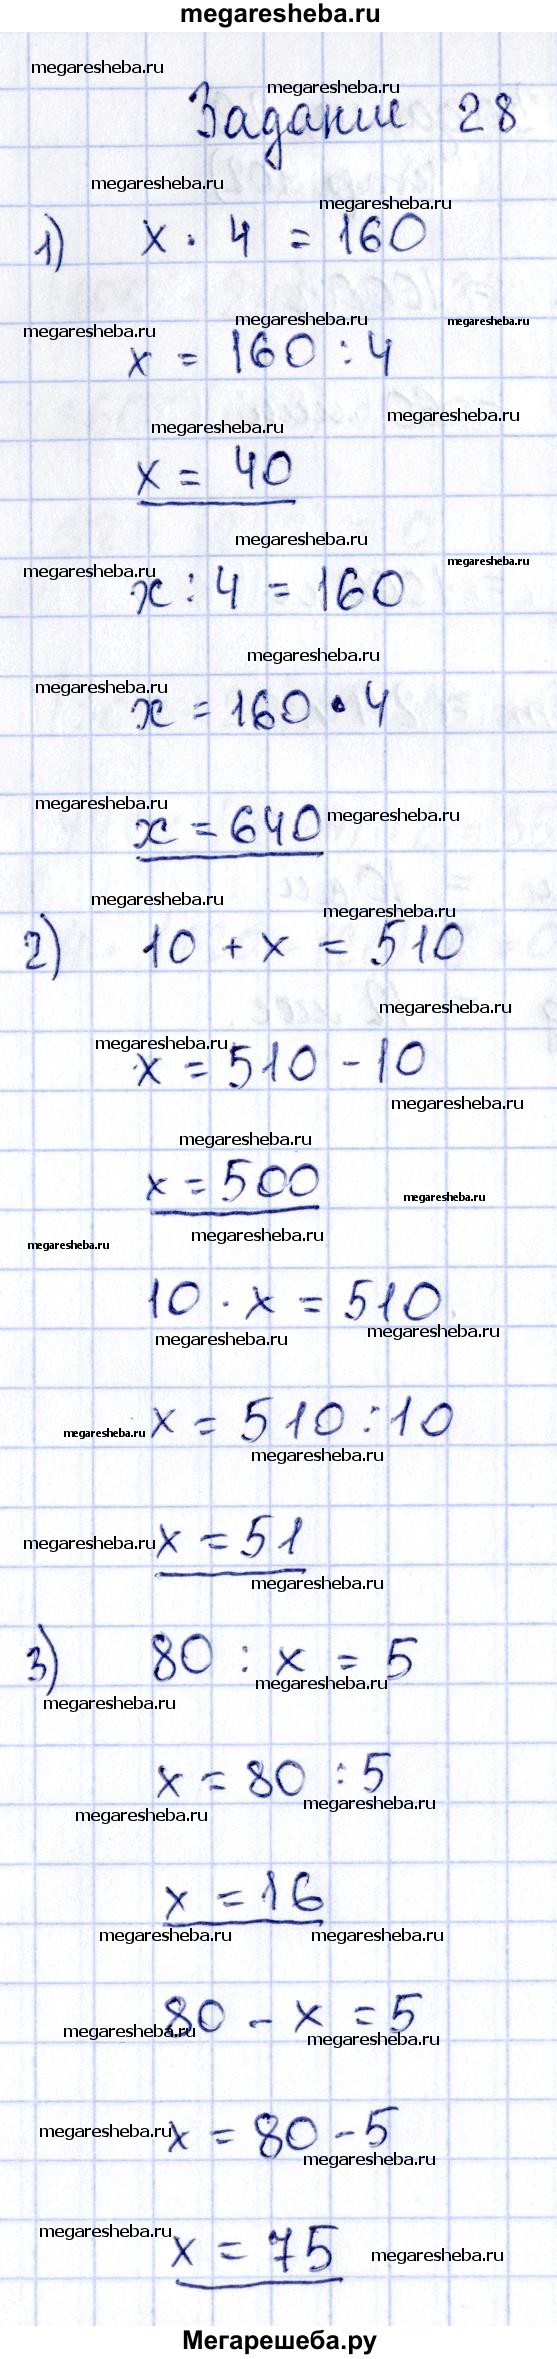 megaresheba.ru
megaresheba.ru
megaresheba.ru
Задание 28
megaresheba.ru
megaresheba.ru
1) x · 4 = 160
megaresheba.ru
megaresheba.ru
megaresheba.ru
x = 160 : 4
megaresheba.ru
megaresheba.ru
x = 40
megaresheba.ru
megaresheba.ru
megaresheba.ru
x : 4 = 160
megaresheba.ru
megaresheba.ru
x = 160 · 4
megaresheba.ru
megaresheba.ru
x = 640
megaresheba.ru
megaresheba.ru
2) 10 + x = 510
megaresheba.ru
megaresheba.ru
x = 510 - 10
megaresheba.ru
megaresheba.ru
x = 500
megaresheba.ru
megaresheba.ru
megaresheba.ru
10 · x = 510
megaresheba.ru
megaresheba.ru
x = 510 : 10
megaresheba.ru
megaresheba.ru
megaresheba.ru
x = 51
megaresheba.ru
3) 80 : x = 5
megaresheba.ru
megaresheba.ru
x = 80 : 5
megaresheba.ru
megaresheba.ru
x = 16
megaresheba.ru
megaresheba.ru
80 - x = 5
megaresheba.ru
megaresheba.ru
x = 80 - 5
megaresheba.ru
megaresheba.ru
megaresheba.ru
x = 75
megaresheba.ru
Мегарешеба.ру